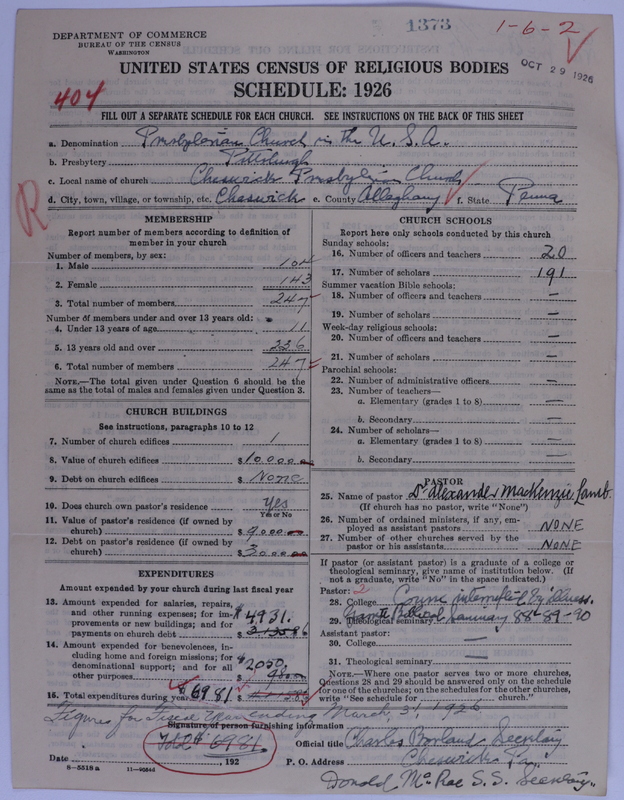 1373
1-6-2
DEPARTMENT OF COMMERCE
BUREAU OF THE CENSUS
WASHINGTON
OCT 29 1926
UNITED STATES CENSUS OF RELIGIOUS BODIES
SCHEDULE: 1926
404
FILL OUT A SEPARATE SCHEDULE FOR EACH CHURCH. SEE INSTRUCTIONS ON THE BACK OF THIS SHEET
a. Denomination Presbyterian Church in the U.S.A.
b. Presbytery Pittsburgh
c. Local name of church Cheswick Presbyterian Church
d. City, town, village, or township, etc. Cheswick e. County Allegheny f. State Penna
R
MEMBERSHIP
Report number of members according to definition of
member in your church
Number of members, by sex:
1. Male 104
2. Female 143
3. Total number of members 247
Number of members under and over 13 years old:
4. Under 13 years of age 11
5. 13 years old and over 236
6. Total number of members 247
NOTE.—The total given under Question 6 should be the
same as the total of males and females given under Question 3.
CHURCH BUILDINGS
See instructions, paragraphs 10 to 12
7. Number of church edifices 1
8. Value of church edifices $10,000
9. Debt on church edifices $None
10. Does church own pastor's residence Yes
Yes or No
11. Value of pastor's residence (if owned by
church) $9,000
12. Debt on pastor's residence (if owned by
church) $3,000
EXPENDITURES
Amount expended by your church during last fiscal year
13. Amount expended for salaries, repairs,
and other running expenses; for im-
provements or new buildings; and for
payments on church debt $4931.
14. Amount expended for benevolences, in-
cluding home and foreign missions; for
denominational support; and for all
other purposes $2050.
15. Total expenditures during year $6981
CHURCH SCHOOLS
Report here only schools conducted by this church
Sunday schools:
16. Number of officers and teachers 20
17. Number of scholars 191
Summer vacation Bible schools:
18. Number of officers and teachers —
19. Number of scholars —
Week-day religious schools:
20. Number of officers and teachers —
21. Number of scholars —
Parochial schools:
22. Number of administrative officers —
23. Number of teachers—
a. Elementary (grades 1 to 8) —
b. Secondary —
24. Number of scholars—
a. Elementary (grades 1 to 8) —
b. Secondary —
PASTOR
25. Name of pastor Dr. Alexander MacKenzie Lamb.
(If church has no pastor, write "None")
26. Number of ordained ministers, if any, em-
ployed as assistant pastors NONE
27. Number of other churches served by the
pastor or his assistants NONE
If pastor (or assistant pastor) is a graduate of a college or
theological seminary, give name of institution below. (If
not a graduate, write "No" in the space indicated.)
Pastor: 2
28. College Course interrupted by illness.
29. Theological seminary Seminary 88-89-90
Assistant pastor:
30. College —
31. Theological seminary —
NOTE.—Where one pastor serves two or more churches,
Questions 28 and 29 should be answered only on the schedule
for one of the churches; on the schedules for the other churches,
write "See schedule for church."
Figures for Fiscal Year ending March 31 1926
Signature of person furnishing information
Total 6981
Official title Charles Borland Secretary
Date , 192
P. O. Address Cheswick Pa.
8—5518a 11—9054d
Donald McRae S.S. Secretary.